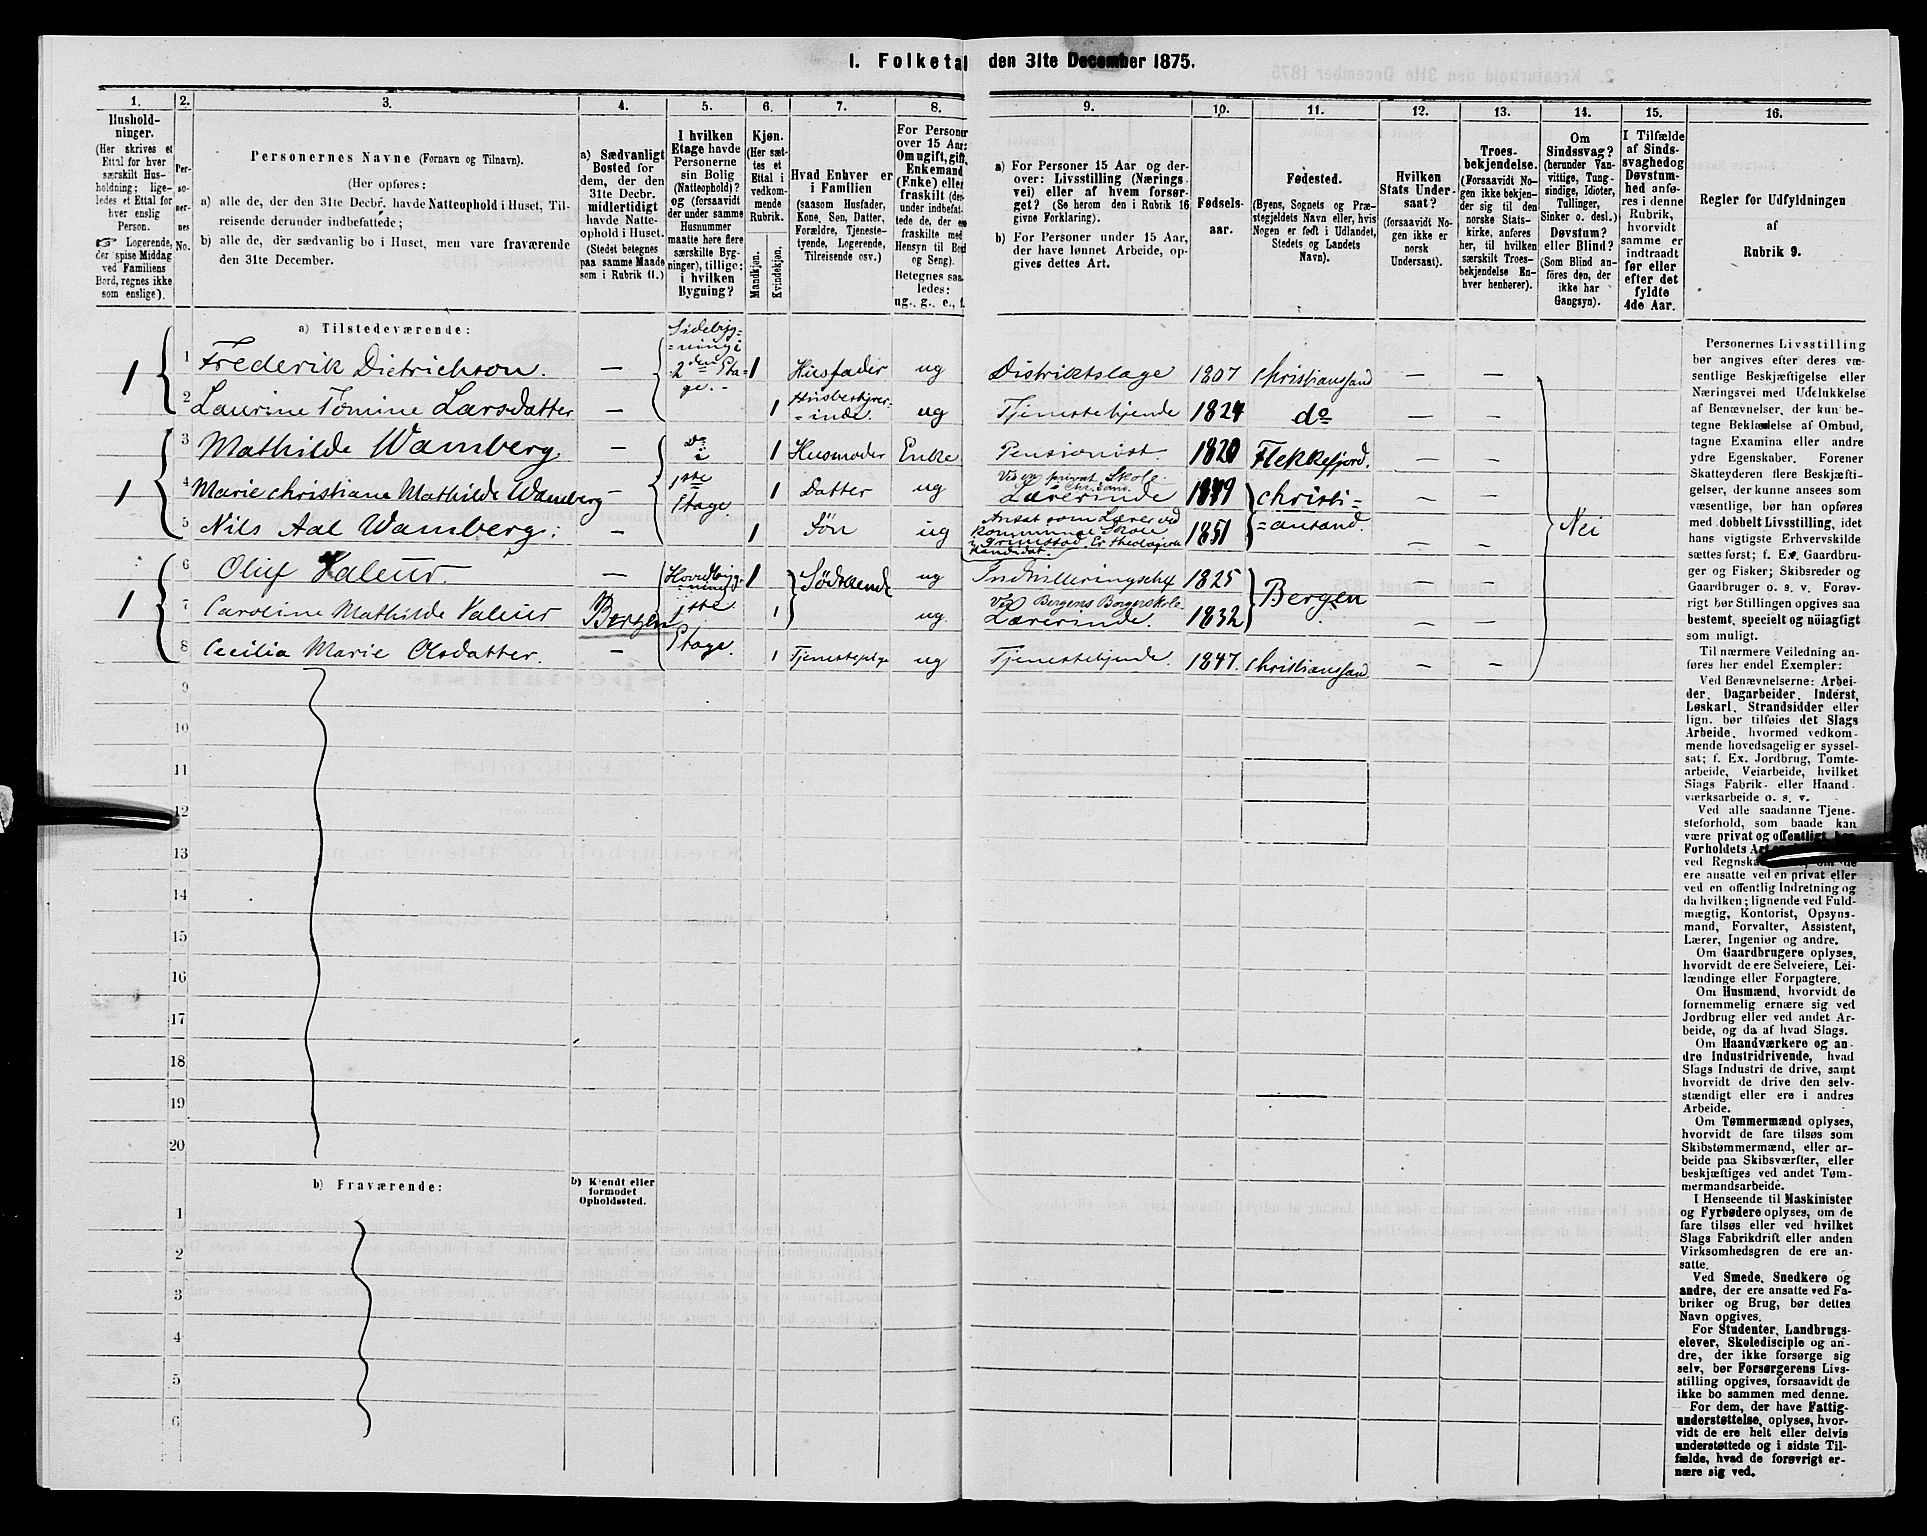 1. Folketal den 31te December 1875.
1. 2. 3. 4. 5. 6. 7. 8. 9. 10. 11. 12. 13. 14. 15. 16.
Hushold-
ninger.
(Her skrives et
Ettal for hver
særskilt Hus-
holdning; lige-
ledes et Ettal for
hver enslig
Person.
☞ Logerende,
der spise Middag
ved Familiens
Bord, regnes ikke
som enslige).
Per-
so-
ner-
nes
No.
Personernes Navne (Fornavn og Tilnavn).
(Her opføres:
a) alle de, der den 31te Decbr. havde Natteophold i Huset, Til-
reisende derunder indbefattede;
b) alle de, der sædvanlig bo i Huset, men vare fraværende
den 31te December.
a) Sædvanligt
Bosted for
dem, der den
31te Decbr.
midlertidigt
havde Natte-
ophold i Huset.
(Stedet betegnes
paa samme Maade
som i Rubrik 11.)
I hvilken
Etage havde
Personerne
sin Bolig
(Natteophold)?
og (forsaavidt
der under samme
Husnummer
maatte høre flere
særskilte Byg-
ninger), tillige:
i hvilken
Bygning?
Kjøn.
(Her sæt-
tes et
Ettal i
vedkom-
mende
Rubrik.
Mandkjøn.
Kvindekjøn.
Hvad Enhver er
i Familien
(saasom Husfader,
Kone, Søn, Datter,
Forældre, Tjeneste-
tyende, Logerende,
Tilreisende osv.)
For Personer
over 15 Aar:
Om ugift, gift,
Enkemand
(Enke) eller
fraskilt (der-
under indbefat-
tede de, der ere
fraskilte med
Hensyn til Bord
og Seng).
Betegnes saa-
ledes:
ug., g., e., f.
a) For Personer 15 Aar og der-
over: Livsstilling (Nærings-
vei) eller af hvem forsør-
get? (Se herom den i Rubrik 16
givne Forklaring).
b) For Personer under 15 Aar,
der have lønnet Arbeide, op-
gives dettes Art.
Fødsels-
aar.
Fødested.
(Byens, Sognets og Præ-
stegjeldets Navn eller, hvis
Nogen er født i Udlandet,
Stedets og Landets
Navn).
Hvilken
Stats Under-
saat?
(forsaavidt No-
gen ikke er
norsk
Undersaat).
Troes-
bekjendelse.
(Forsaavidt No-
gen ikke bekjen-
der sig til den
norske Stats-
kirke, anføres
her, til hvilken
særskilt Troes-
bekjendelse En-
hver henhører).
Om
Sindssvag?
(herunder Van-
vittige, Tung-
sindige, Idioter,
Tullinger,
Sinker o. desl.)
Døvstum?
eller Blind?
(Som Blind an-
føres den, der
ikke har
Gangsyn).
I Tilfælde
af Sinds-
svaghed og
Døvstum-
hed anfø-
res i denne
Rubrik,
hvorvidt
samme er
indtraadt
før eller
efter det
fyldte
4de Aar.
Regler for Udfyldningen
af
Rubrik 9.
a) Tilstedeværende:
Sidebyg-
=ning i
2den Eta-
ge.
1 1 Frederik Dietrichson. — 1 Husfader ug Distriktslæge 1807 Christianssand — —
2 Laurine Tomine Larsdatter — 1 Husbestyrer-
=inde. ug Tjenestetyende 1824 do — —
1 3 Mathilde Wamberg — Do i 1 Husmoder Enke Pensionist 1820 Flekkefjord. — —
4 Marie Christiane Mathilde Wamberg — 1ste Etage. 1 Datter ug Ved en privat Skole i Chr.sand.
Lærerinde 1849 Christi=
5 Nils Aal Wamberg. — 1 Søn ug Ansat som Lærer ved
Kommune Skole
i Grimstad. Er theologisk
Kandidat. 1851 =ansand. — — Nei
1 6 Oluf Valeur. — Hovedbyg-
=ning 1 Sødskende ug 1825 Bergen — —
7 Caroline Mathilde Valeur Bergen 1ste 1 ug. Ved Bergens Borgerskole
Lærerinde. 1832 — —
8 Cecilia Marie Olsdatter. — Etage. 1 Tjenestepige ug Tjenestetyende. 1847. Christianssand — —
9
10
11
12
13
14
15
16
17
18
19
20
b) Fraværende:
b) Kjendt eller
formodet
Opholdssted.
1
2
3
4
5
6
Personernes Livsstilling
bør angives efter deres væ-
sentlige Beskjæftigelse eller
Næringsvei med Udelukkelse
af Benævnelser, der kun be-
tegne Beklædelse af Ombud,
tagne Examina eller andre
ydre Egenskaber. Forener
Skatteyderen flere Beskjæfti-
gelser, der kunne ansees som
væsentlige, bør han opføres
med dobbelt Livsstilling, idet
hans vigtigste Erhvervskilde
sættes først; f. Ex. Gaardbru-
ger og Fisker; Skibsreder og
Gaardbruger o. s. v. Forøv-
rigt bør Stillingen opgives saa
bestemt, specielt og nöiagtigt
som muligt.
Til nærmere Veiledning an-
føres her endel Exempler:
Ved Benævnelserne: Arbei-
der, Dagarbeider, Inderst,
Løskarl, Strandsidder eller
lign. bør tilføies det Slags
Arbeide, hvormed vedkom-
mende hovedsagelig er syssel-
sat; f. Ex. Jordbrug, Tomte-
arbeide, Veiarbeide, hvilket
Slags Fabrik- eller Haand-
værksarbeide o. s. v.
Ved alle saadanne Tjene-
steforhold, som baade kan
være privat og offentligt, bør
Forholdets Art
ved Regnska
ere ansatte ved en privat eller
ved en offentlig Indretning og
da hvilken; lignende ved Fuld-
mægtig, Kontorist, Opsyns-
mand, Forvalter, Assistent,
Lærer, Ingeniør og andre.
Om Gaardbrugere oplyses,
hvorvidt de ere Selveiere, Lei-
lændinge eller Forpagtere.
Om Husmænd, hvorvidt de
fornemmelig ernære sig ved
Jordbrug eller ved andet Ar-
beide, og da af hvad Slags.
Om Haandværkere og an-
dre Industridrivende, hvad
Slags Industri de drive, samt
hvorvidt de drive den selv-
stændigt eller ere i andres
Arbeide.
Om Tømmermænd oplyses,
hvorvidt de fare tilsøs som
Skibstømmermænd, eller ar-
beide paa Skibsværfter, eller
beskjæftiges ved andet Tøm-
mermandsarbeide.
I Henseende til Maskinister
og Fyrbødere oplyses, om de
fare tilsøs eller ved hvilket
Slags Fabrikdrift eller anden
Virksomhedsgren de ere an-
satte.
Ved Smede, Snedkere og
andre, der ere ansatte ved Fa-
briker og Brug, bør dettes
Navn opgives.
For Studenter, Landbrugs-
elever, Skoledisciple og an-
dre, der ikke forsørge sig
selv, bør Forsørgerens Livs-
stilling opgives, forsaavidt de
ikke bo sammen med denne.
For dem, der have Fattig-
understøttelse, oplyses, hvor-
vidt de ere helt eller delvis
understøttede og i sidste Til-
fælde, hvad de forøvrigt er-
nære sig ved.